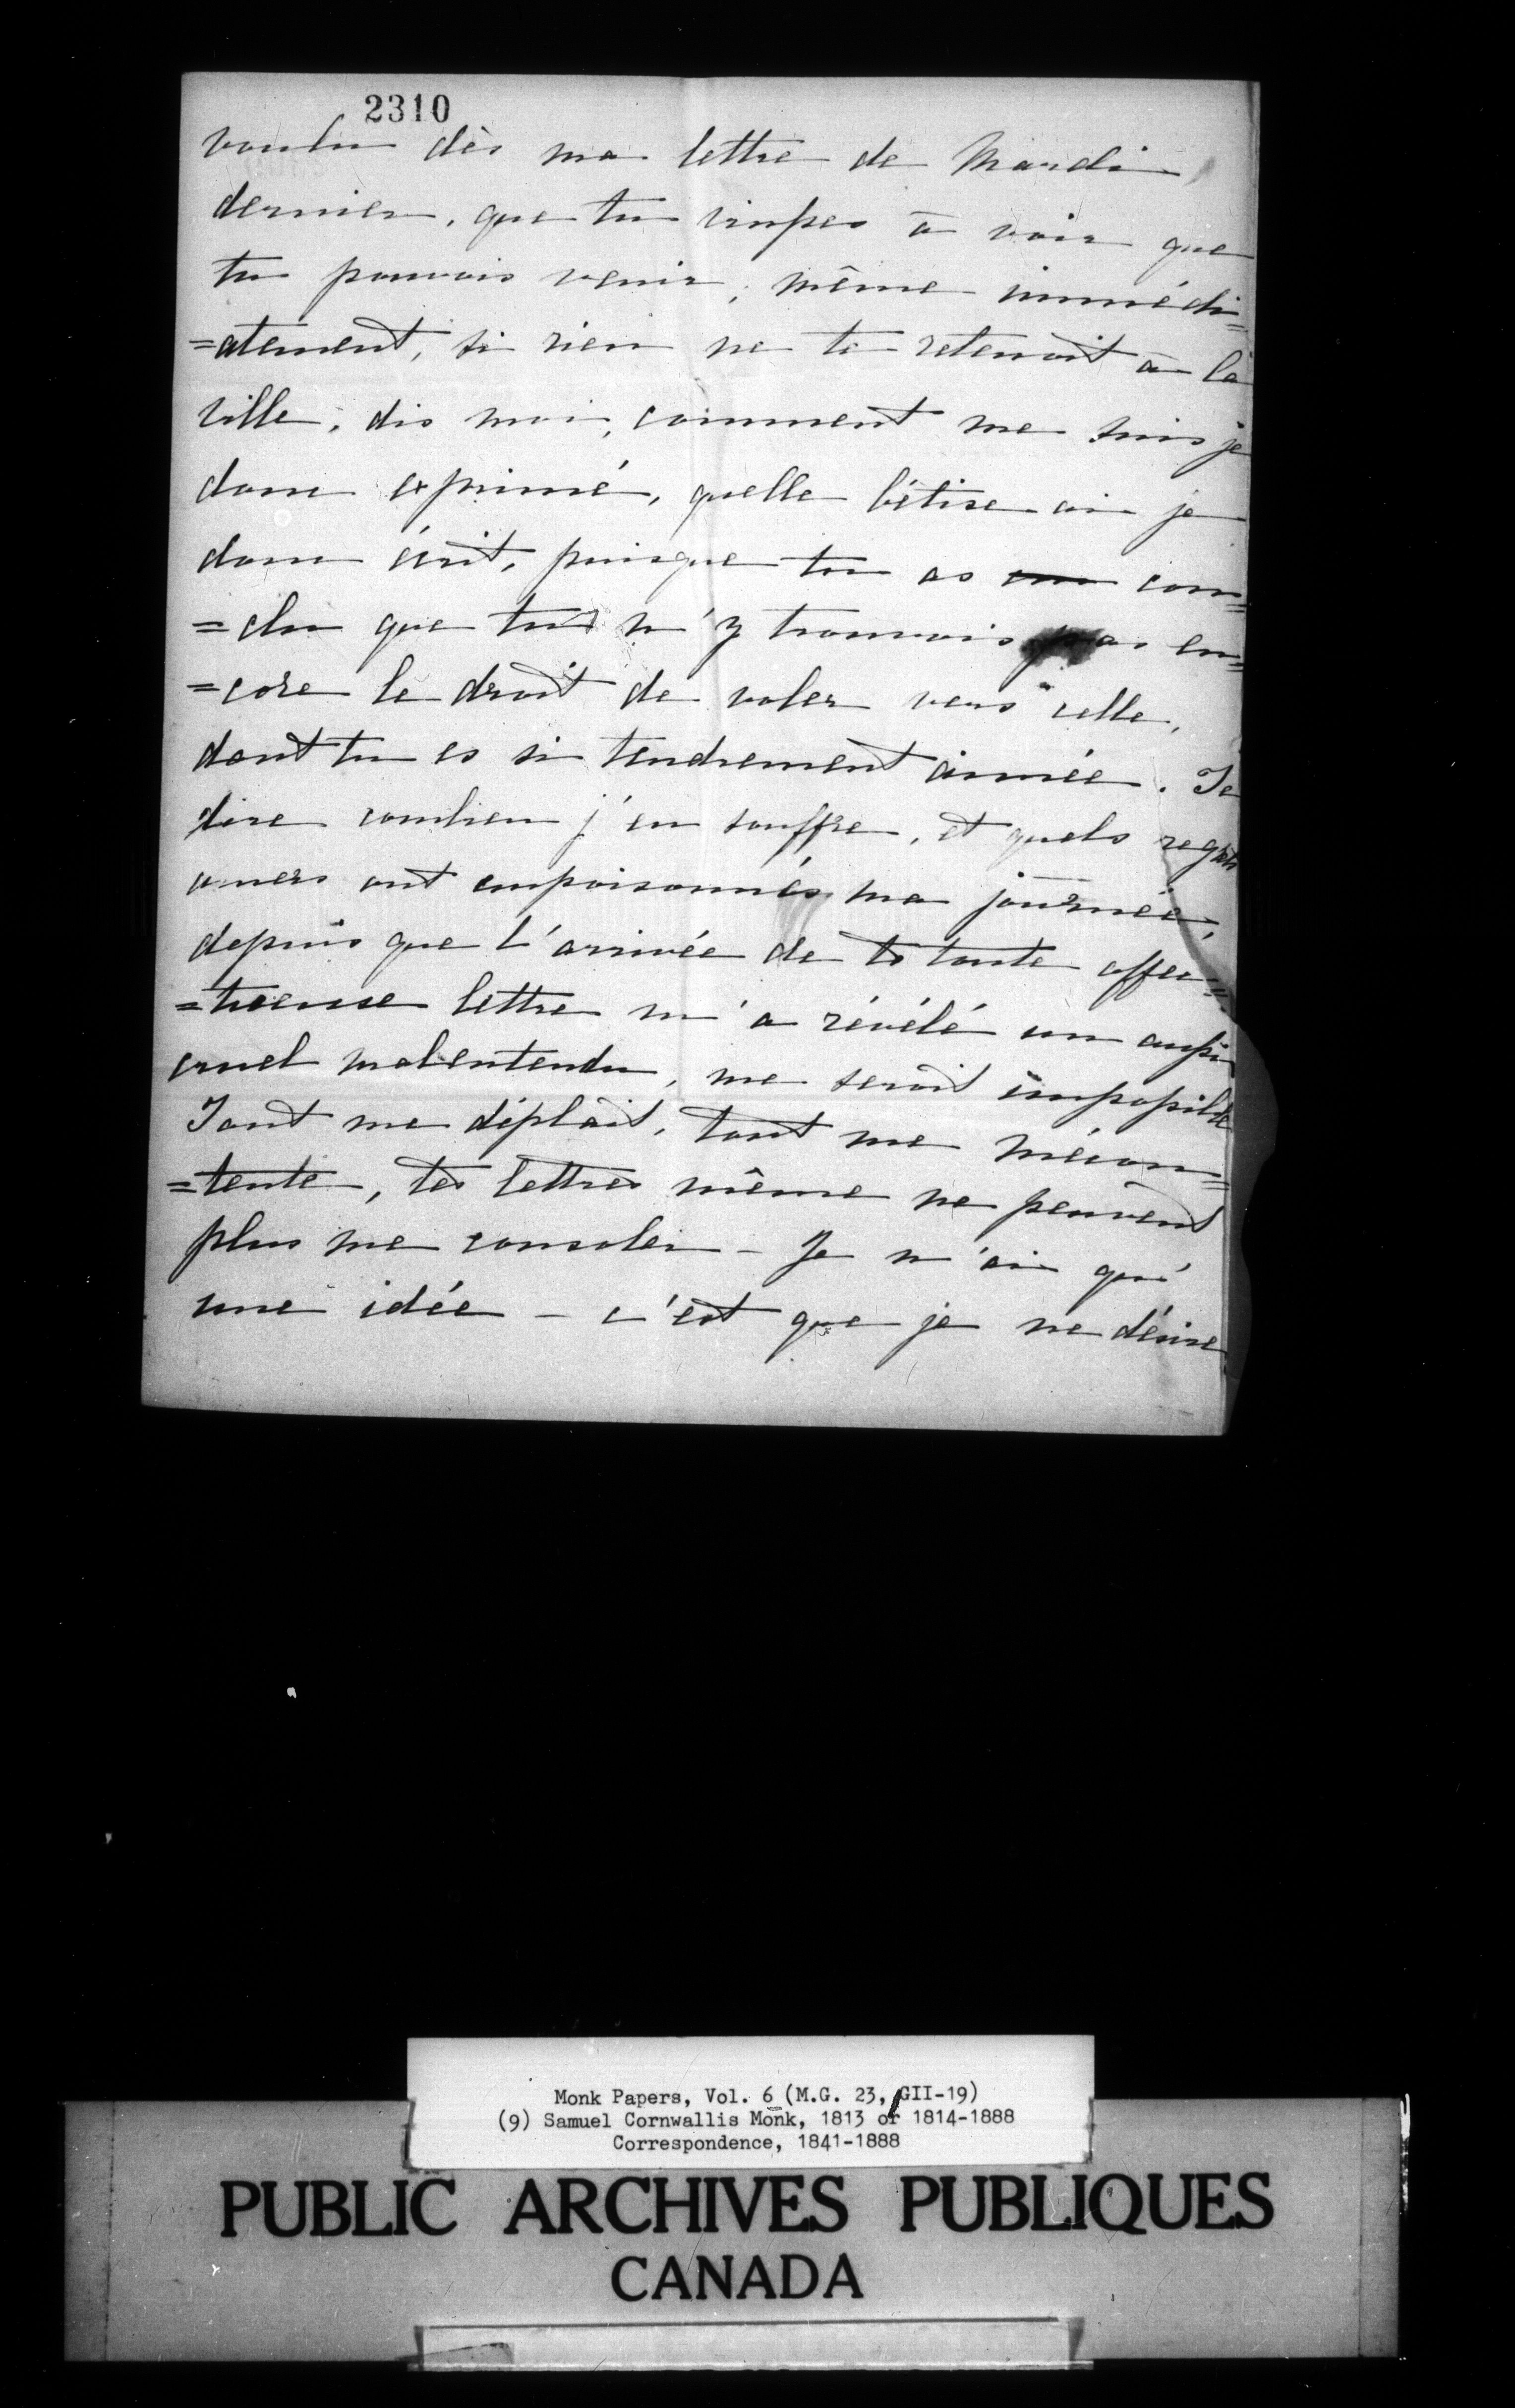 2310
voulu dès ma lettre de Mardi
dernier, que tu visses à voir que
tu pouvois venir, même immédi=
=atement, si rien ne te retenoit à la
ville, dis moi, comment me suis je
donc exprimé, quelle bêtise ai je
donc écrit, puisque tu as con=
=clu que tu n'y trouvois pas en=
=core le droit de voler vers celle,
dont tu es si tendrement aimée. Te
dire combien j'en souffre, et quels regrets
amers ont empoisonnés ma journée,
depuis que l'arrivée de ta toute affec=
=tueuse lettre m'a révélé un aussi
cruel malentendu, me seroit impossible
Tout me déplait, tout me mécon=
=tente, tes lettres même ne peuvent
plus me consoler – Je n'ai qu'
une idée – c'est que je ne désire
Monk Papers, Vol. 6 (M.G. 23, GII-19)
(9) Samuel Cornwallis Monk, 1813 or 1814-1888
Correspondence, 1841-1888
PUBLIC ARCHIVES PUBLIQUES
CANADA